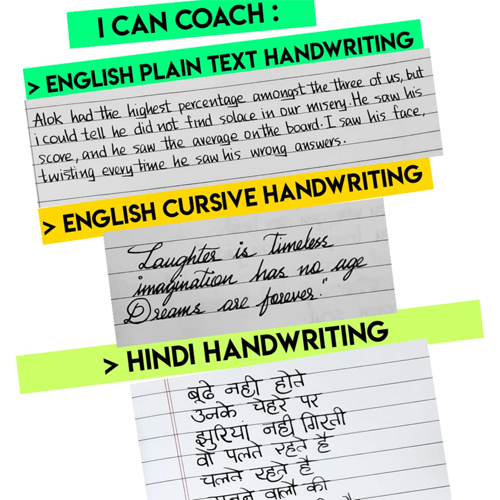 I CAN COACH :
> ENGLISH PLAIN TEXT HANDWRITING
Alok had the highest percentage amongst the three of us, but
i could tell he did not find solace in our misery. He saw his
score, and he saw the average on the board. I saw his face,
twisting every time he saw his wrong answers.
> ENGLISH CURSIVE HANDWRITING
"Laughter is timeless
imagination has no age
Dreams are forever."
> HINDI HANDWRITING
बूढे नही होते
उनके चेहरे पर
झुरियां नही गिरती
वो पलते रहते है
चलते रहते है
वालो की